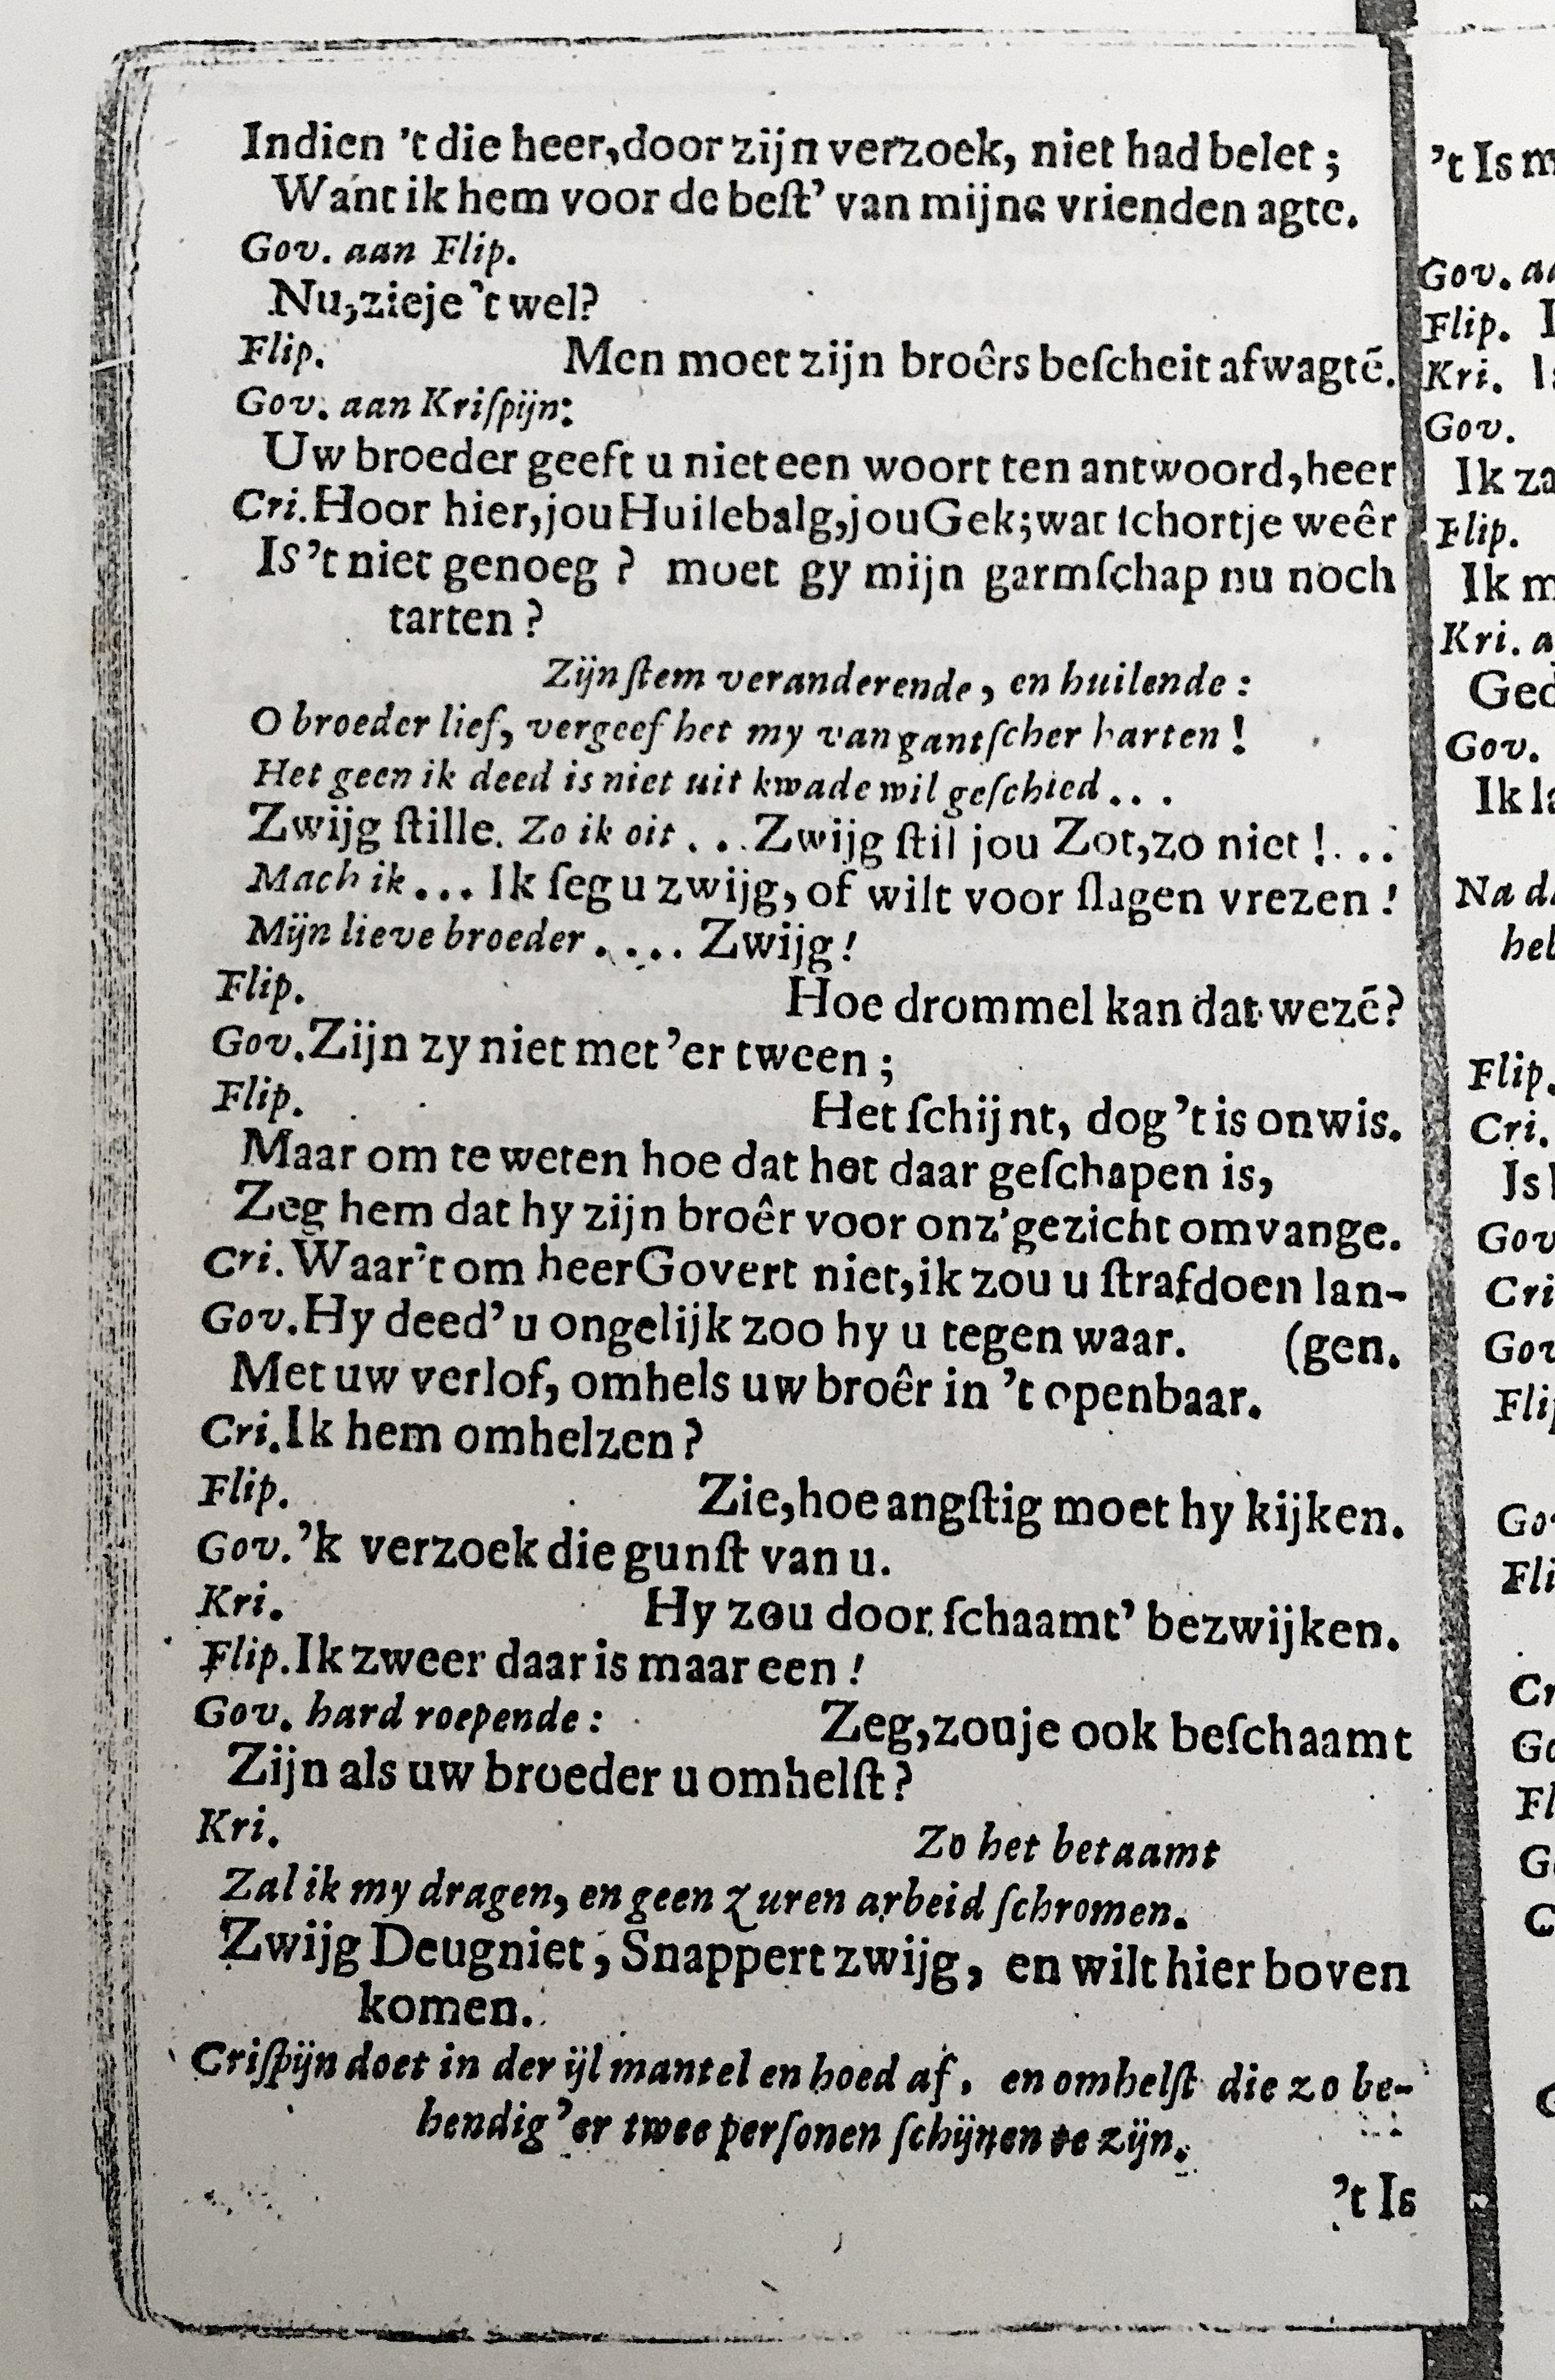 Indien 't die heer, door zijn verzoek, niet had belet ;
Want ik hem voor de beſt' van mijne vrienden agte.
Gov. aan Flip.
Nu, zieje 't wel?
Flip. Men moet zijn broêrs beſcheit afwagtē.
Gov. aan Kriſpijn:
Uw broeder geeft u niet een woort ten antwoord, heer
Cri. Hoor hier, jou Huilebalg, jou Gek; wat ſchortje weêr
Is 't niet genoeg ? moet gy mijn garmſchap nu noch
tarten ?
Zijn ſtem veranderende, en huilende :
O broeder lief, vergeef het my van gantſcher harten !
Het geen ik deed is niet uit kwade wil geſchied . . .
Zwijg ſtille. Zo ik oit . . . Zwijg ſtil jou Zot, zo niet ! . . .
Mach ik . . . Ik ſeg u zwijg, of wilt voor ſlagen vrezen !
Mijn lieve broeder . . . . Zwijg !
Flip. Hoe drommel kan dat wezē?
Gov. Zijn zy niet met 'er tween ;
Flip. Het ſchijnt, dog 't is onwis.
Maar om te weten hoe dat het daar geſchapen is,
Zeg hem dat hy zijn broêr voor onz' gezicht omvange.
Cri. Waar 't om heer Govert niet, ik zou u ſtraf doen lan-
Gov. Hy deed' u ongelijk zoo hy u tegen waar. (gen.
Met uw verlof, omhels uw broêr in 't openbaar.
Cri. Ik hem omhelzen ?
Flip. Zie, hoe angſtig moet hy kijken.
Gov. 'k verzoek die gunſt van u.
Kri. Hy zou door ſchaamt' bezwijken.
Flip. Ik zweer daar is maar een !
Gov. hard roepende : Zeg, zouje ook beſchaamt
Zijn als uw broeder u omhelſt ?
Kri. Zo het betaamt
Zal ik my dragen, en geen zuren arbeid ſchromen.
Zwijg Deugniet, Snappert zwijg, en wilt hier boven
komen.
Criſpijn doet in der ijl mantel en hoed af, en omhelſt die zo be-
hendig 'er twee perſonen ſchijnen te zijn.
't Is
't Is
Gov.
Flip.
Kri.
Gov.
Ik
Flip.
Ik
Kri.
Gov.
Ik
Na
Flip.
Cri.
Gov
Cri